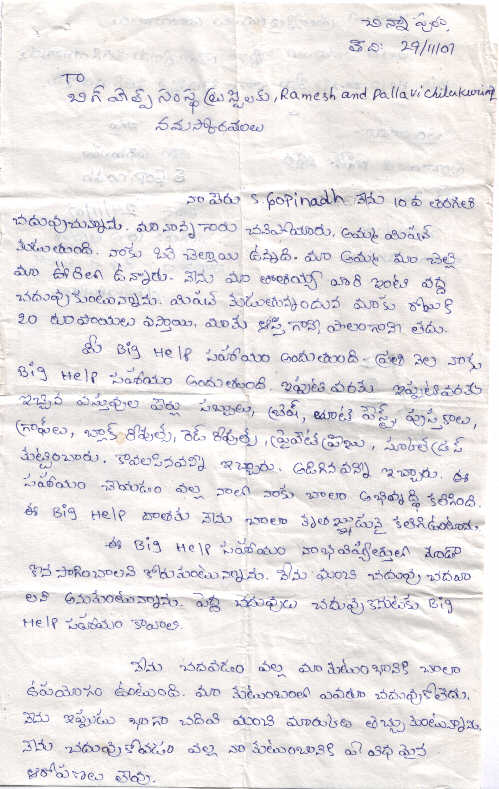 చిన్నాపురం,
తేది: 29/11/07
TO
బిగ్ హెల్ప్ సంస్థ ట్రస్టీలకు, Ramesh and Pallavi Chilukuri
నమస్కారములు
నా పేరు S. Gopinadh. నేను 10 వ తరగతి
చదువుచున్నాను. మా నాన్న గారు చనిపోయారు. అమ్మ మిషన్
కుడుతుంది. నాకు ఒక చెల్లాయి ఉన్నది. మా అమ్మ మా చెల్లి
మా ఊరిలో ఉన్నారు. నేను మా తాతయ్య వారి ఇంటి వద్ద
చదువుకుంటున్నాను. మిషన్ కుడుతున్నందున మాకు రోజుకి
20 రూపాయలు వస్తాయి. మాకు ఆస్తి గాని, పొలం గాని లేదు.
మీ Big Help సహాయం అందుతుంది. ప్రతి నెల నాకు
Big Help సహాయం అందుతుంది. ఇప్పటి వరకు
ఇచ్చిన వస్తువుల పేర్లు సబ్బులు, బ్రష్, టూత్ పేస్ట్, పుస్తకాలు,
గ్రాఫ్‌లు, బ్లాక్ రీఫిల్స్, రెడ్ రీఫిల్స్, ప్రైవేట్ ఫీజు, స్కూల్ డ్రస్
కుట్టించారు. కావలసినవన్నీ ఇచ్చారు. అడిగినవన్నీ ఇచ్చారు. ఈ
సహాయం చేయడం వల్ల నాలో నాకు చాలా అభివృద్ధి కలిగింది.
ఈ Big Help దాతకు నేను చాలా కృతజ్ఞుడునై కలిగి ఉంటాను.
ఈ Big Help సహాయం నా భవిష్యత్తులో కూడా
కొనసాగించాలని కోరుకుంటున్నాను. నేను మంచి చదువు చదవా
లని అనుకుంటున్నాను. పెద్ద చదువులు చదువుకొనుటకు Big
Help సహాయం కావాలి.
నేను చదవడం వల్ల మా కుటుంబానికి చాలా
ఉపయోగం ఉంటుంది. మా కుటుంబంలో ఎవరూ చదువుకోలేదు.
నేను ఇప్పుడు బాగా చదివి మంచి మార్కులు తెచ్చుకుంటున్నాను.
నేను చదువుకోవడం వల్ల నా కుటుంబానికి ఏ విధమైన
ఆరోపణలు లేవు.